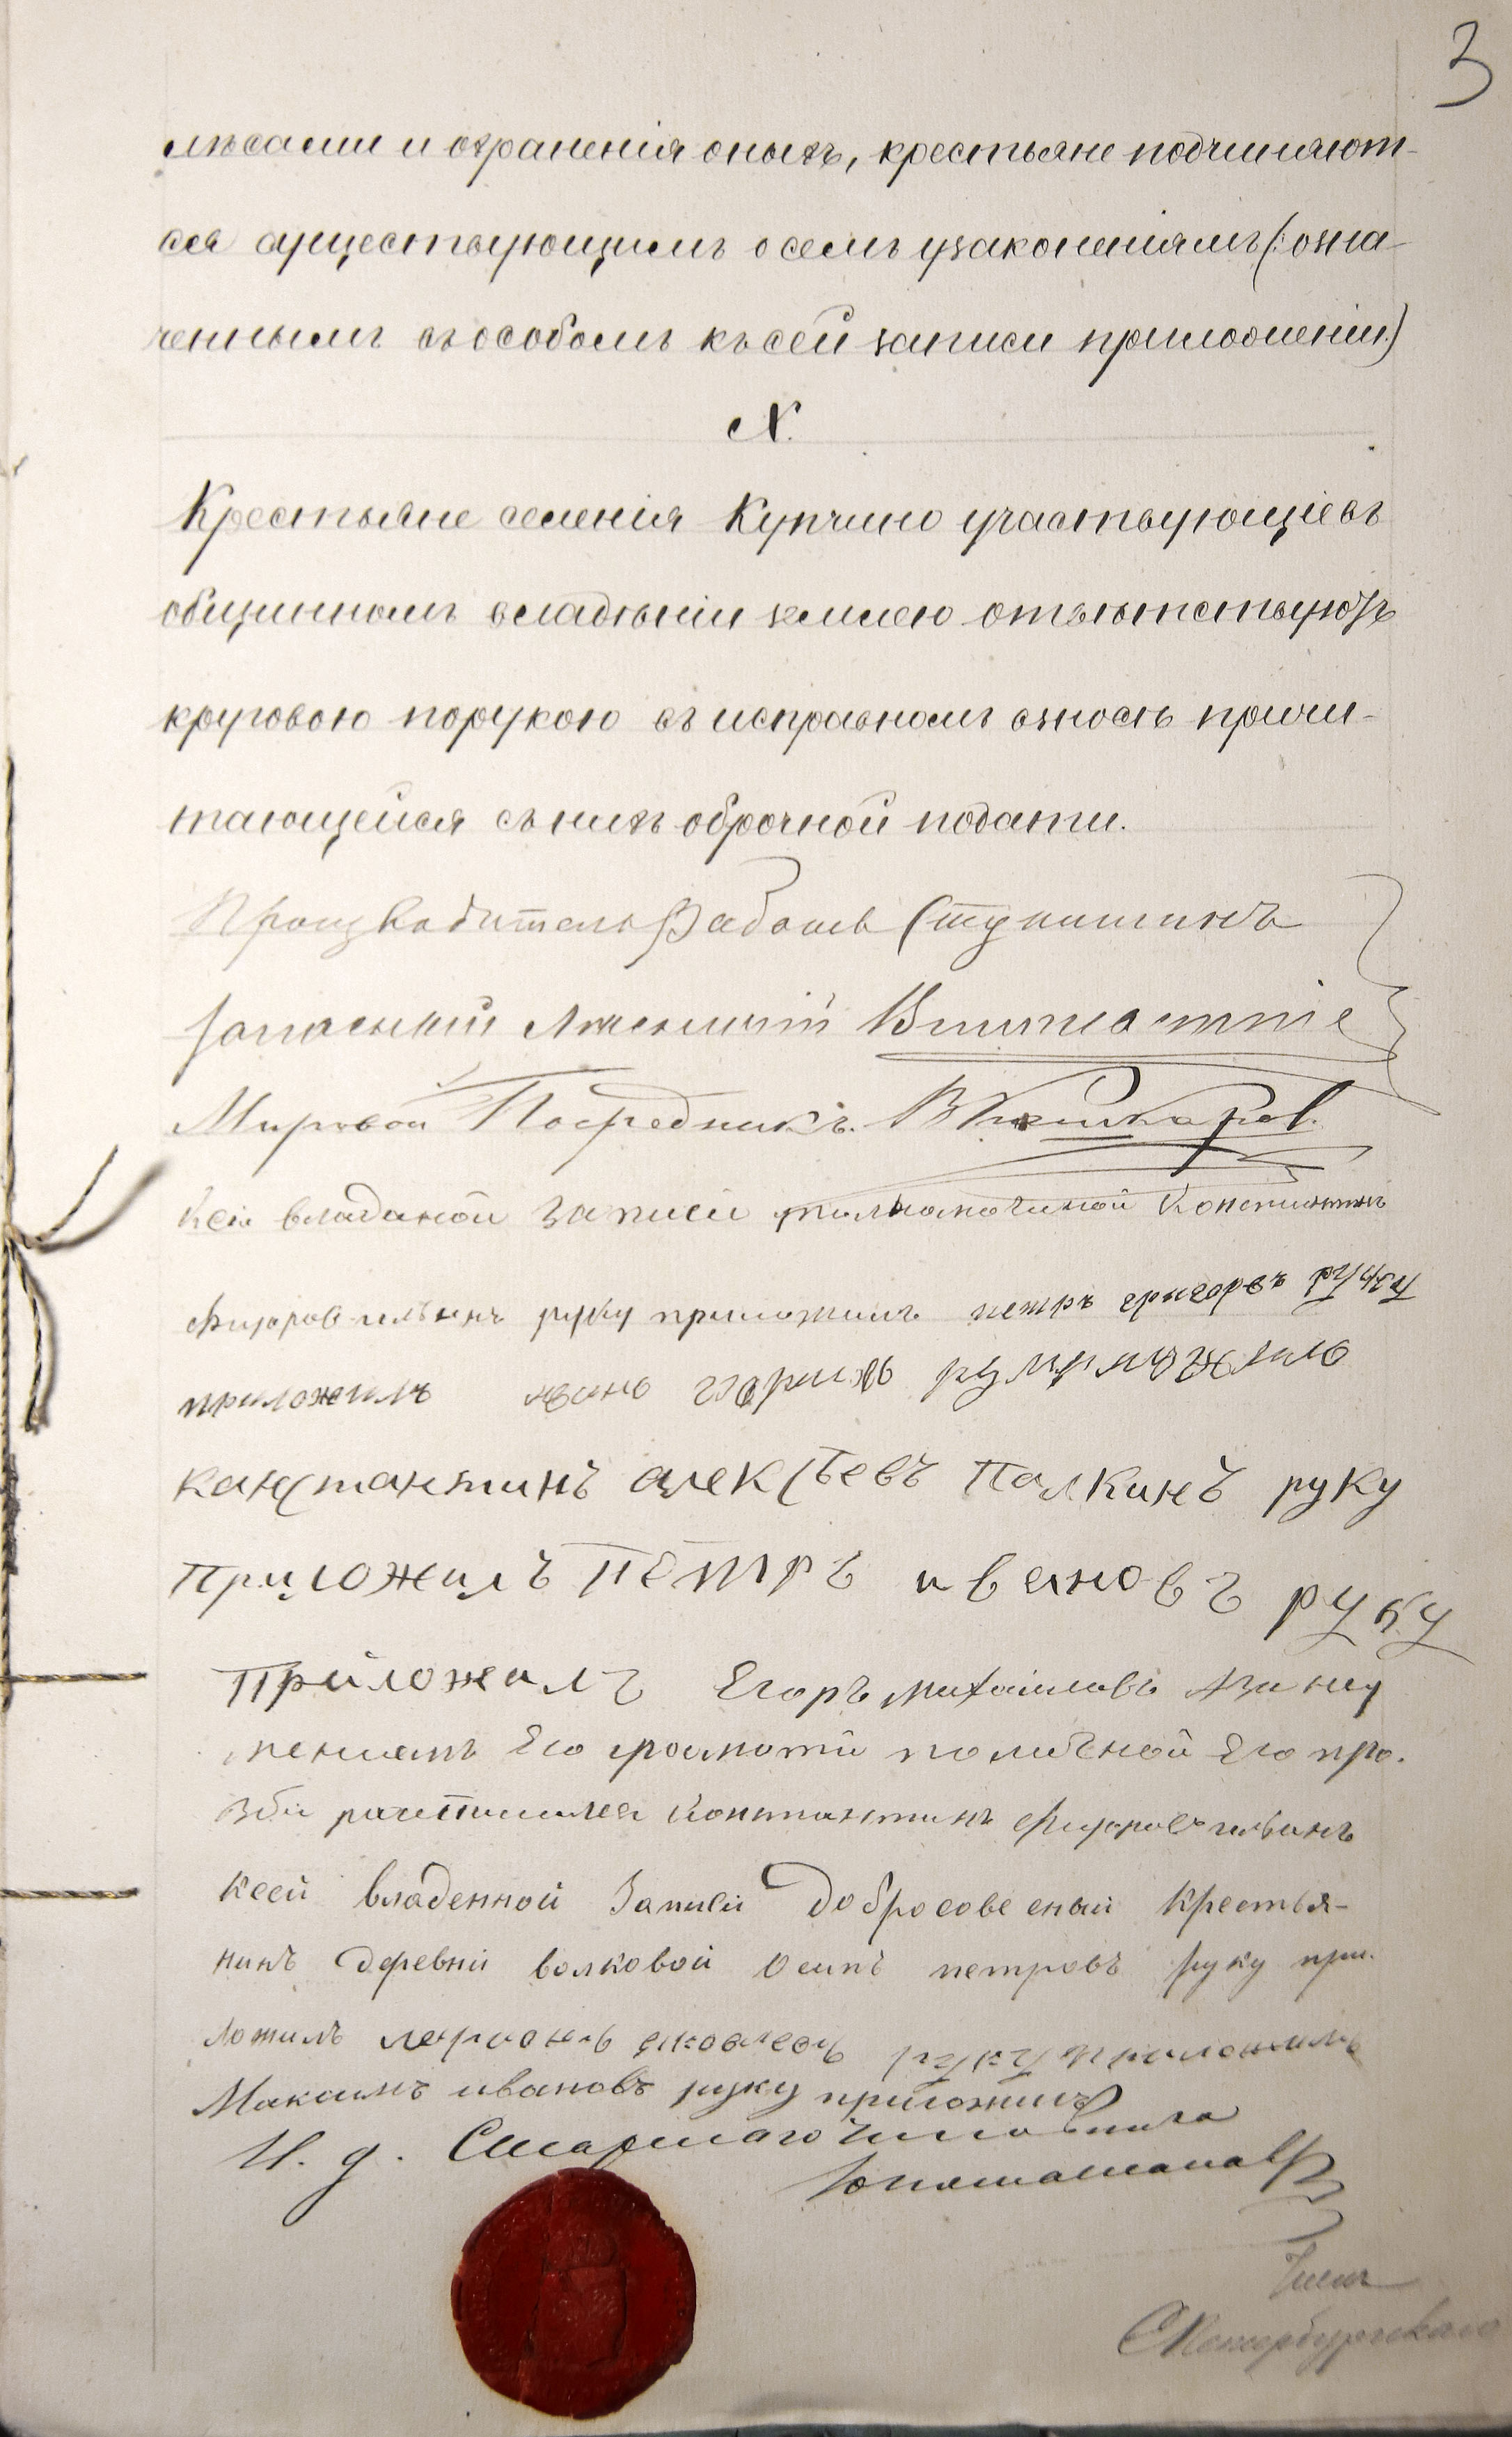 3
лѣсами и охраненія оныхъ, крестьяне подчиняют-
ся существующимъ о семъ узаконеніямъ (: озна-
ченнымъ въ особомъ къ сей записи приложеніи.)
X.
Крестьяне селенія Купчино участвующіе въ
общинномъ владѣніи землею отвѣтствуютъ
круговою порукою въ исправномъ взносѣ причи-
тающейся съ нихъ оброчной подати.
Производитель Работъ
Мировой Посредникъ.
Ксей владаной записи Констинтинъ
руку приложилъ петръ григорвъ руку
приложилъ иванъ
канстантинъ алексѣевъ Палкинъ руку
Приложилъ пётръ ивановъ руку
Прйложилъ Егоръ михаиловъ
Его грамоти поличной Его про.
зби Контантинъ
Ксей владенной Записи добросовесный Крестья-
нинъ деревни волковой Осипъ петровъ руку при
ложилъ ларионъ яковлевъ руку приложилъ
Максимъ ивановъ руку приложилъ
И. д. Старшаго Чиновника
Членъ
СПетербургскаго